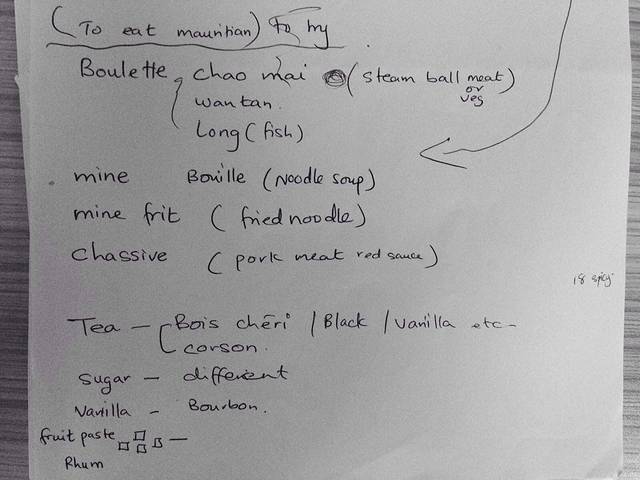 (To eat mauritian) To try
Boulette, chao mai (steam ball meat or veg)
wantan.
Long (fish)
mine Bouille (Noodle soup)
mine frit (fried noodle)
chassive (pork meat red sauce)
18 spicy
Tea - Bois chéri / Black / vanilla etc-
corson.
sugar - different
Vanilla - Bourbon.
fruit paste -
Rhum